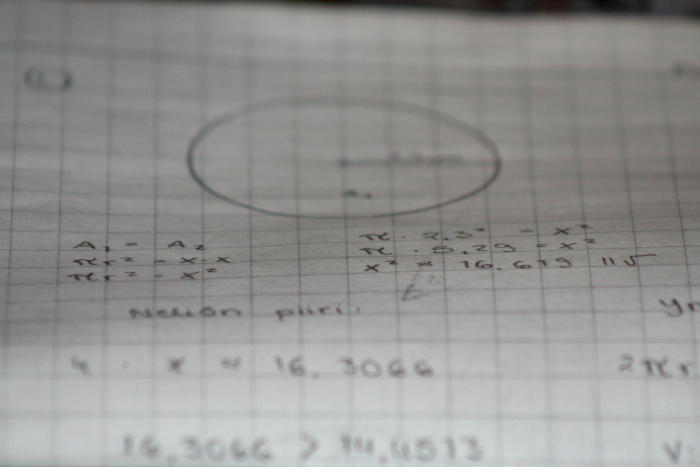 1.)
A₁ = A₂
πr² = x · x
πr² = x²
π · 2.3² = x²
π · 5.29 = x²
x² ≈ 16.619 ||√
Neliön piiri.
4 · x ≈ 16,3066
2πr
16,3066 > 14,4513
V.